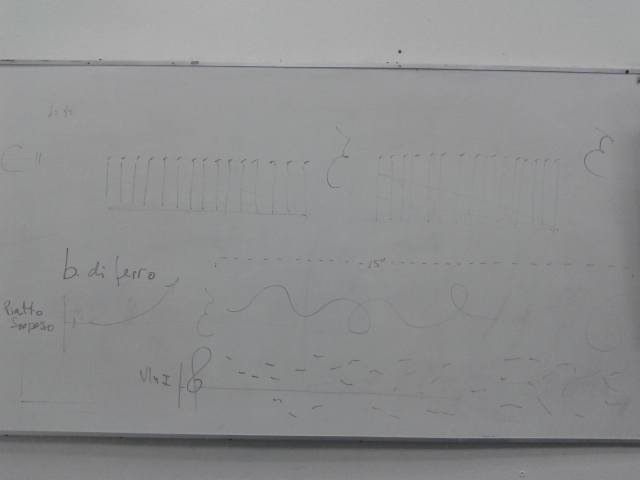 b. di ferro
15"
Piatto
Sospeso
Vln I